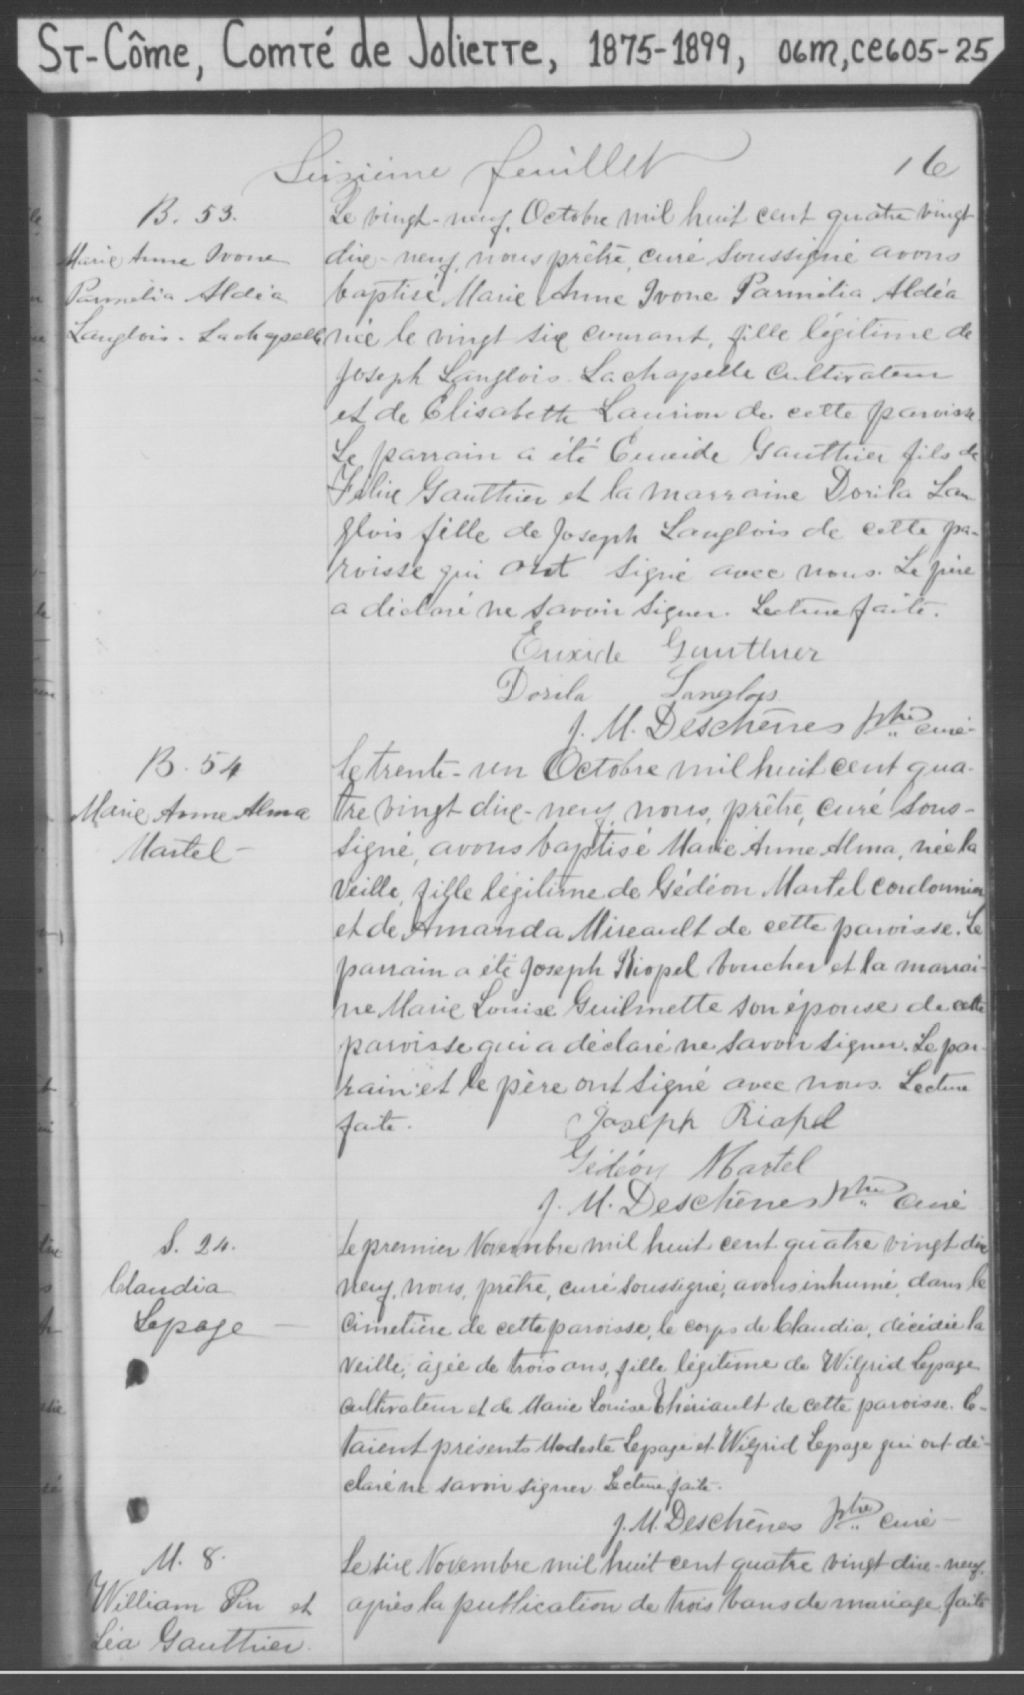 St-Côme, Comté de Joliette, 1875-1899, 06m,ce605-25
Seizième feuillet 16
B. 53.
Marie Anne Ivone
Parmélia Aldéa
Langlois-Lachapelle
Le vingt-neuf, Octobre mil huit cent quatre vingt
dix-neuf, nous prêtre, curé soussigné avons
baptisé Marie Anne Ivone Parmélia Aldéa
née le vingt six courant, fille légitime de
Joseph Langlois-Lachapelle cultivateur
et de Elisabeth Laurion de cette paroisse.
Le parrain a été Euxide Gauthier fils de
Félix Gauthier et la marraine Dorila Lan
glois fille de Joseph Langlois de cette pa-
roisse qui ont signé avec nous. Le père
a déclaré ne savoir signer. Lecture faite.
Euxide Gauthier
Dorila Langlois
J. M. Deschênes ptre curé
B. 54
Marie Anne Alma
Martel
le trente-un Octobre mil huit cent qua-
tre vingt dix-neuf, nous, prêtre, curé sous-
signé, avons baptisé Marie Anne Alma, née la
veille, fille légitime de Gédéon Martel cordonnier
et de Amanda Mireault de cette paroisse. Le
parrain a été Joseph Riopel boucher et la marrai-
ne Marie Louise Guilmette son épouse de cette
paroisse qui a déclaré ne savoir signer. Le par-
rain et le père ont signé avec nous. Lecture
faite.
Joseph Riopel
Gédéon Martel
J. M. Deschênes ptre curé
S. 24.
Claudia
Lepage
Le premier Novembre mil huit cent quatre vingt dix
neuf, nous, prêtre, curé soussigné, avons inhumé, dans le
cimetière de cette paroisse, le corps de Claudia, décédée la
veille, âgée de trois ans, fille légitime de Wilfrid Lepage
cultivateur et de Marie Louise Thériault de cette paroisse. E-
taient présents Modeste Lepage et Wilfrid Lepage qui ont dé-
claré ne savoir signer. Lecture faite.
J. M. Deschênes ptre curé
M. 8.
William Pin et
Léa Gauthier.
Le six Novembre mil huit cent quatre vingt dix-neuf,
après la publication de trois bans de mariage faite